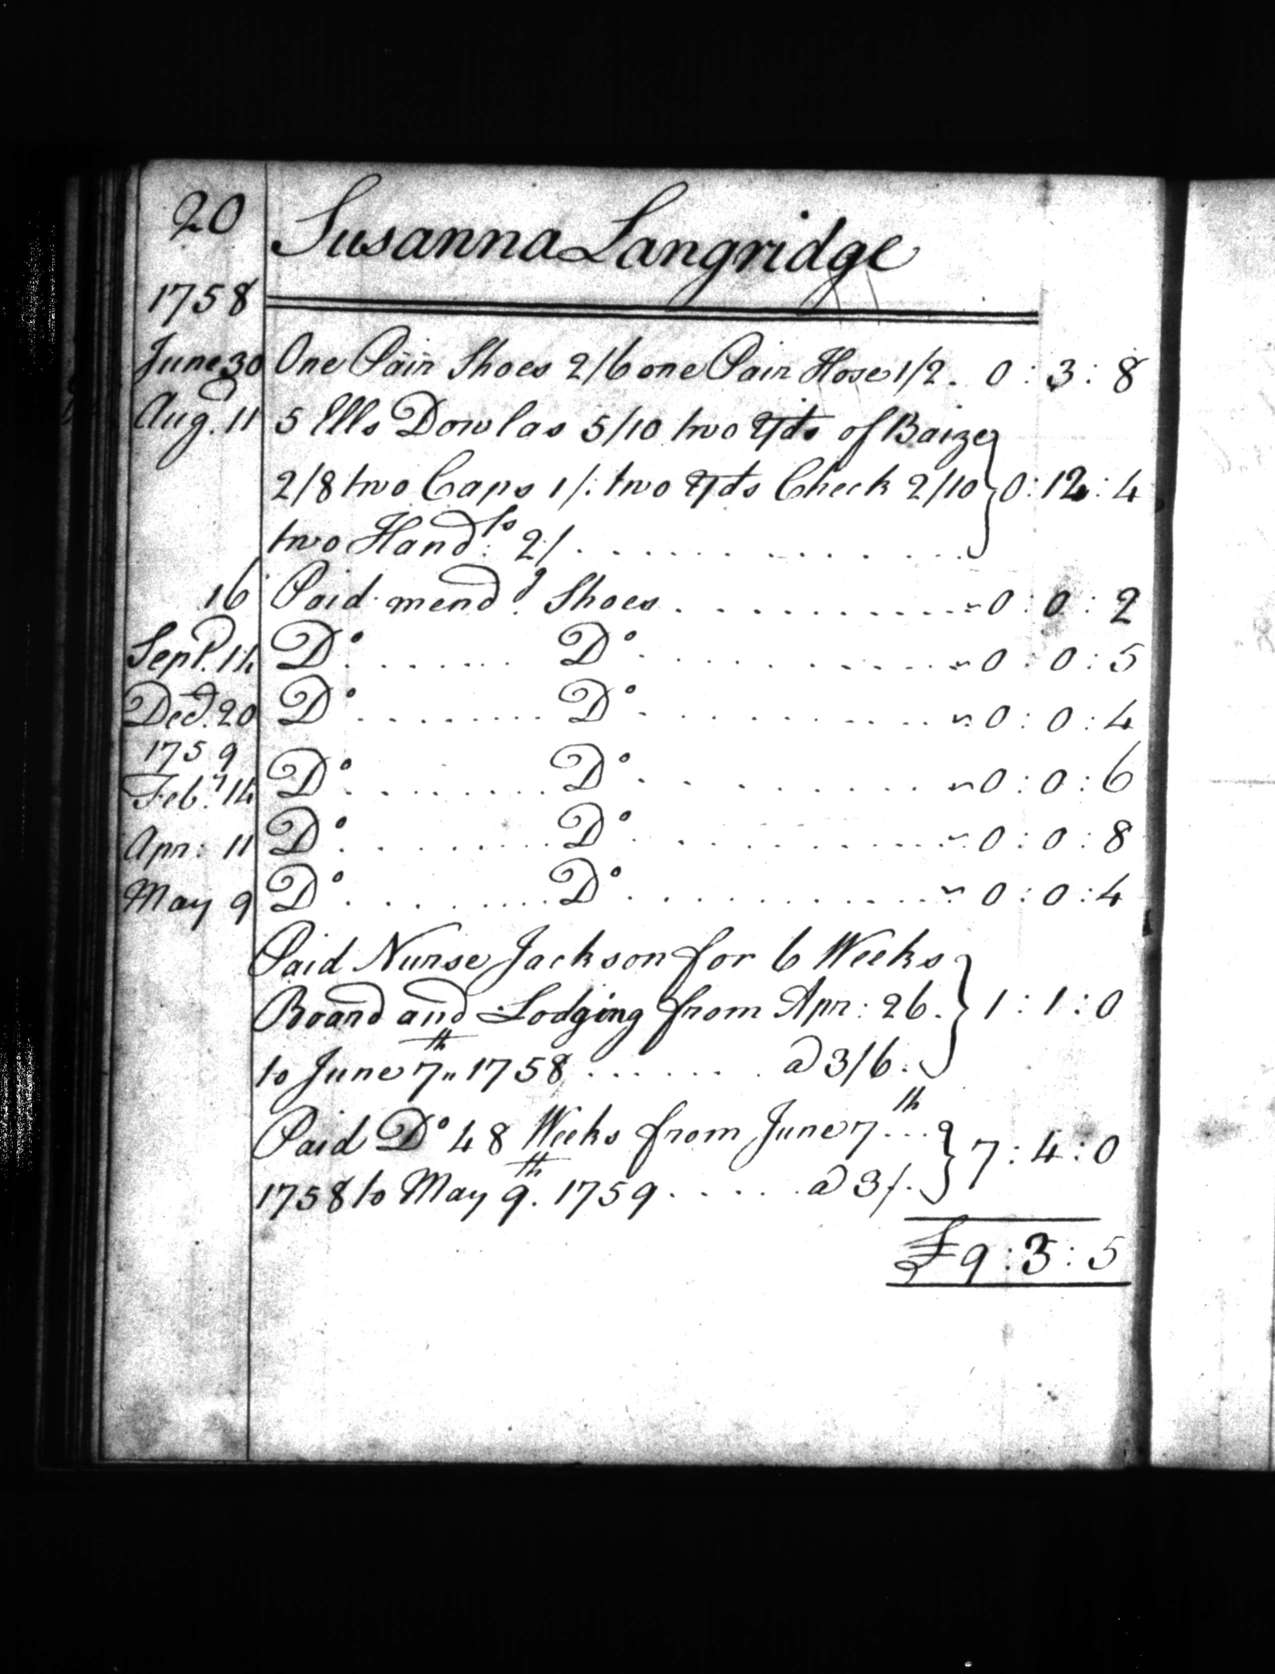 20 Susanna Langridge
1758
June 30 One Pair Shoes 2/6 one Pair Hose 1/2. 0 : 3 : 8
Aug. 11 5 Ells Dowlas 5/10 two Yds of Baize
2/8 two Caps 1/: two Yds Check 2/10 } 0 : 12 : 4
two Hand.fs 2/ . . . . . . . . . . . .
16 Paid mend.g Shoes . . . . . . . . . . ~ 0 : 0 : 2
Sept. 14 Do . . . . . . . Do . . . . . . . . . . ~ 0 : 0 : 5
Decr. 20 Do . . . . . . . . Do . . . . . . . . . . ~ 0 : 0 : 4
1759
Feb.y 14 Do . . . . . . . . Do . . . . . . . . . ~ 0 : 0 : 6
Apr : 11 Do . . . . . . . . Do . . . . . . . . . . ~ 0 : 0 : 8
May 9 Do . . . . . . . . Do . . . . . . . . . . ~ 0 : 0 : 4
Paid Nurse Jackson for 6 Weeks
Board and Lodging from Apr : 26. } 1 : 1 : 0
to June 7th 1758 . . . . . . . a 3/6 .
Paid Do 48 Weeks from June 7th . . .
1758 to May 9th. 1759 . . . . . a 3/. } 7 : 4 : 0
£9 : 3 : 5